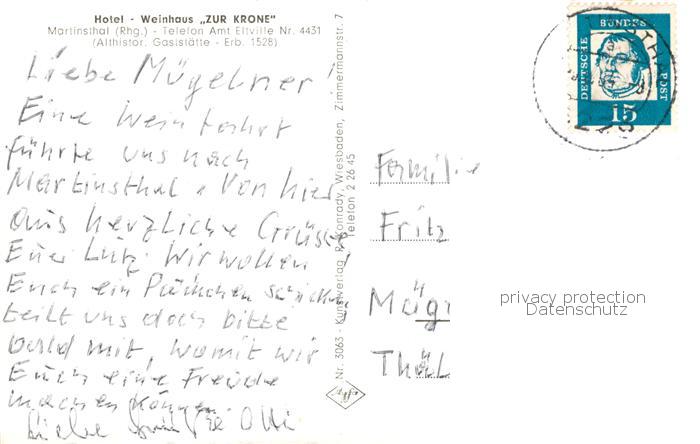 Hotel - Weinhaus „ZUR KRONE"
Martinsthal (Rhg.) - Telefon Amt Eltville Nr. 4431
(Althistor. Gaststätte - Erb. 1528)
Liebe Mügelner!
Eine Weinfahrt
führte uns nach
Martinsthal. Von hier
aus herzliche Grüsse
Euer Lutz. Wir wollen
Euch ein Päckchen schicken
teilt uns doch bitte
bald mit, womit wir
Euch eine Freude
machen können.
Liebe Grüße
Nr. 3063 - Kunstverlag R. Konrady, Wiesbaden, Zimmermannstr. 7
Telefon 2 26 45
DEUTSCHE BUNDESPOST
15
Familie
Fritz
Müg
Thäl
privacy protection
Datenschutz